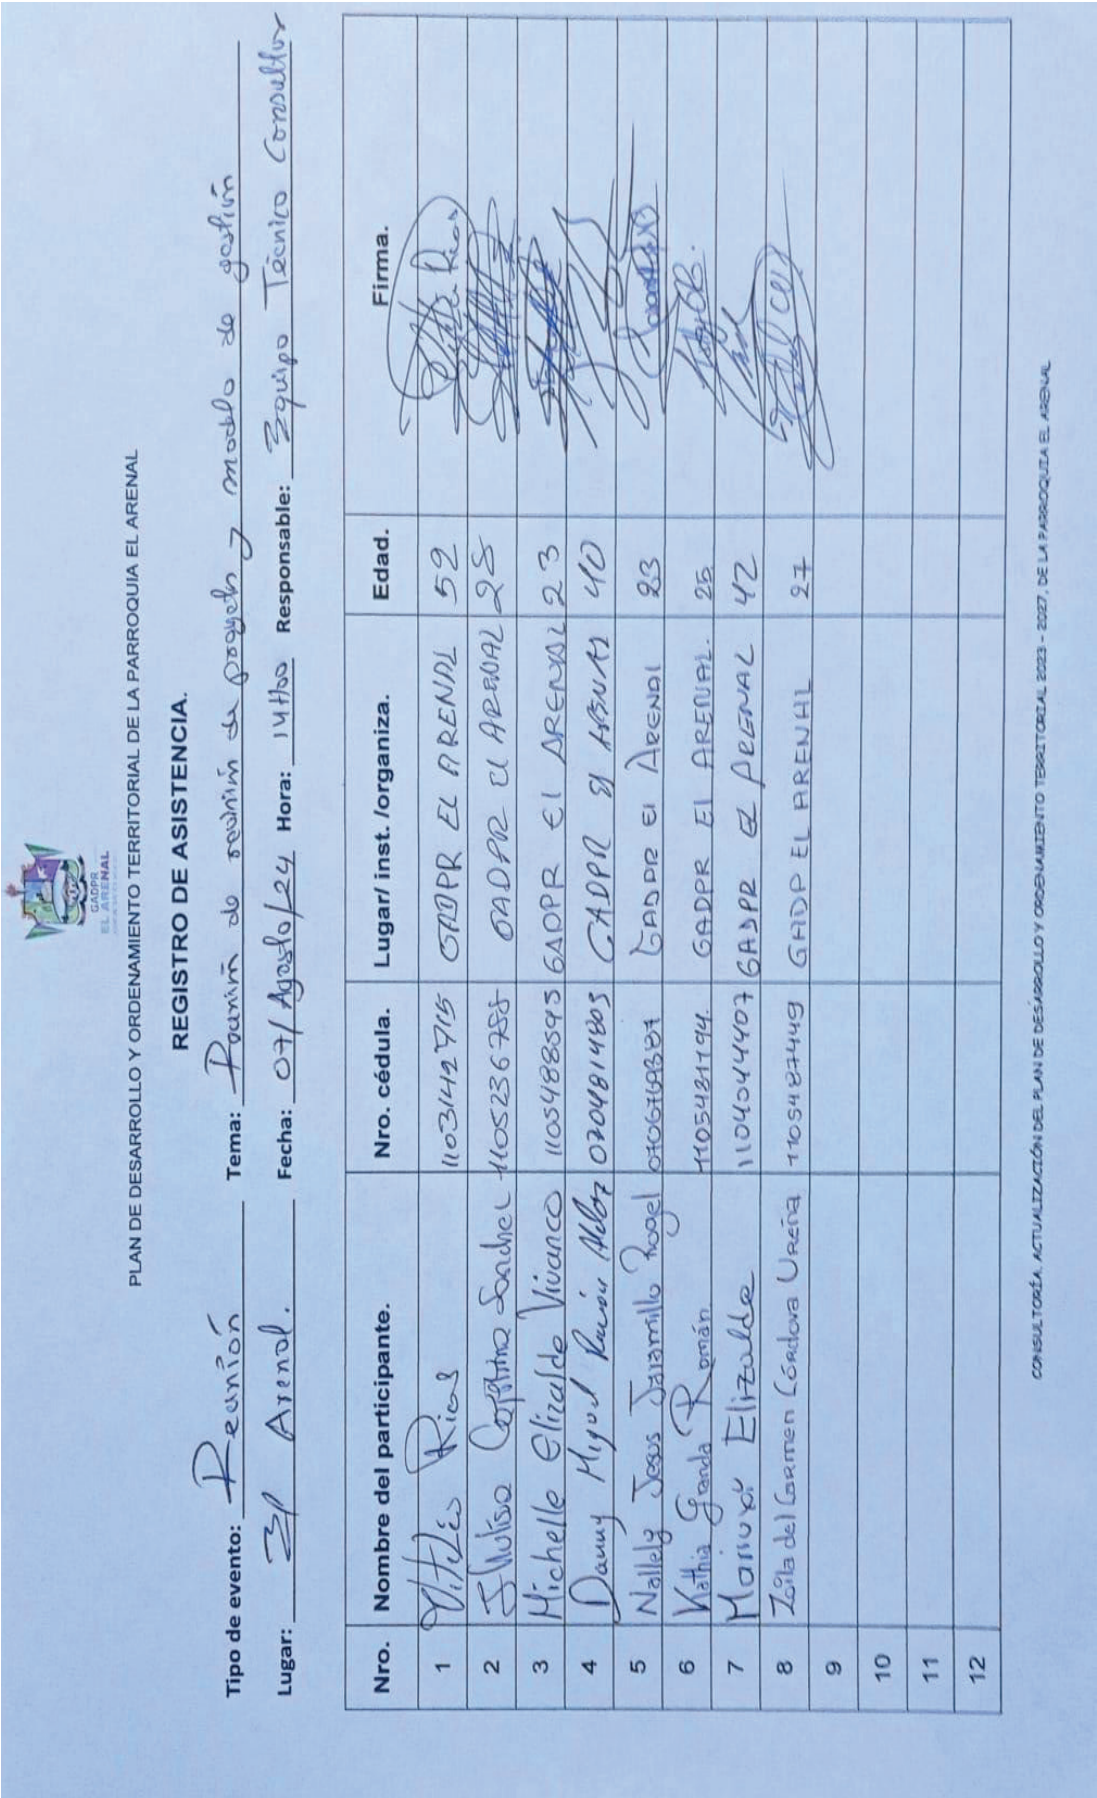 GADPR
EL ARENAL
PLAN DE DESARROLLO Y ORDENAMIENTO TERRITORIAL DE LA PARROQUIA EL ARENAL
REGISTRO DE ASISTENCIA.
Tipo de evento: Reunión Tema: Reunión de revisión de proyectos y modelo de gestión
Lugar: El Arenal. Fecha: 07/Agosto/24 Hora: 14H00 Responsable: Equipo Técnico Consultor
Nro. Nombre del participante. Nro. cédula. Lugar/ inst. /organiza. Edad. Firma.
1 Rios 1103142715 GADPR EL ARENAL 52
2 Sanchez GADPR El ARENAL 28
3 Michelle Elizalde Vivanco 1105488595 GADPR El ARENAL 23
4 Danny Miguel 0704814805 GADPR El 40
5 Nallely Jesus Jaramillo Rogel GADPR El ARENAl 23
6 Kathia Granda Román GADPR El ARENAL. 25
7 Elizalde 1104044407 GADPR El ARENAL 42
8 Zoila del Carmen Córdova Ureña 1105487449 GADP EL ARENAL 27
9
10
11
12
CONSULTORÍA. ACTUALIZACIÓN DEL PLAN DE DESARROLLO Y ORDENAMIENTO TERRITORIAL 2023 - 2027, DE LA PARROQUIA EL ARENAL